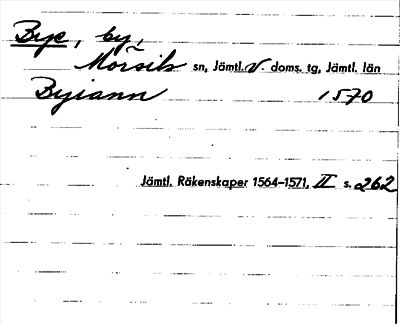 Bye, by,
Mörsils sn, Jämtl. V. doms. tg, Jämtl. län
Byiann 1570
Jämtl. Räkenskaper 1564–1571, II s. 262